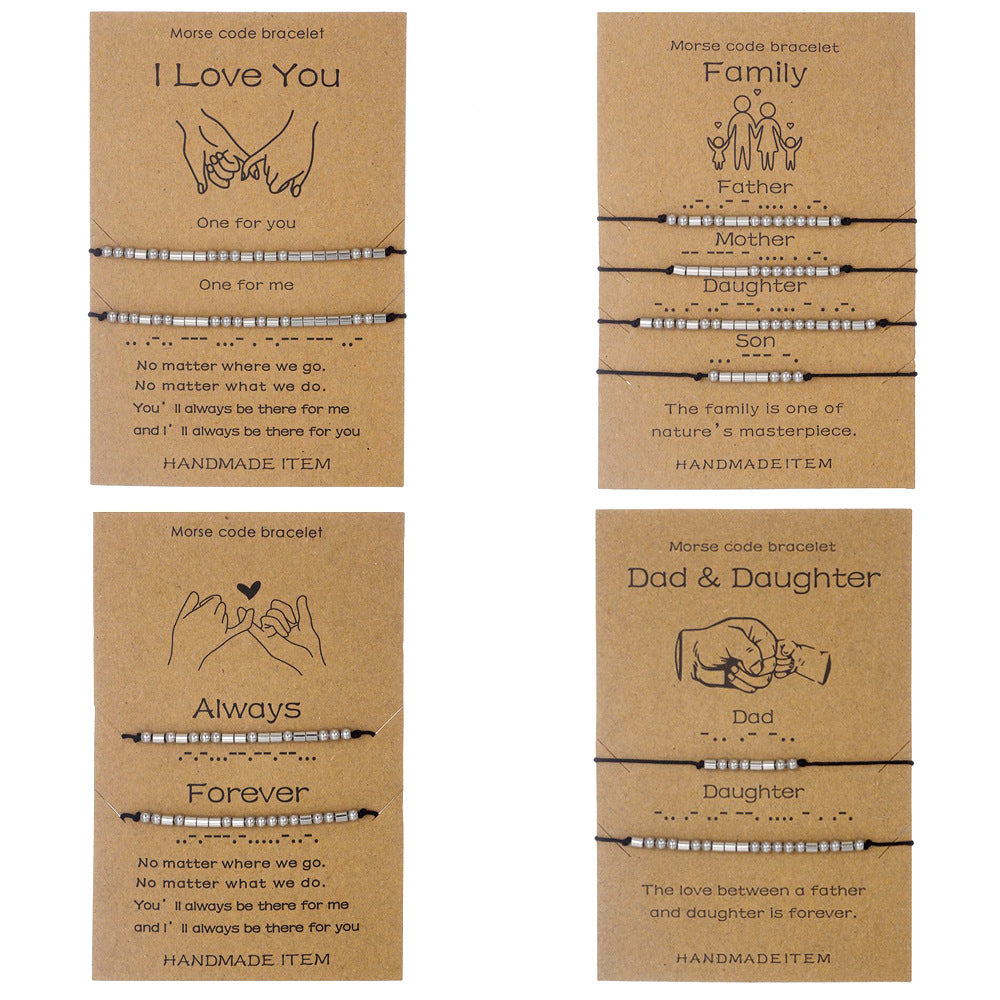 Morse code bracelet
I Love You
One for you
One for me
.. .-.. --- ...- . -.-- --- ..-
No matter where we go.
No matter what we do.
You'll always be there for me
and I'll always be there for you
HANDMADE ITEM
Morse code bracelet
Family
Father
..-. .- - .... . .-.
Mother
-- --- - .... . .-.
Daughter
-.. .- ..- --. .... - . .-.
Son
... --- -.
The family is one of
nature's masterpiece.
HANDMADEITEM
Morse code bracelet
Always
.-.-...--.-.--...
Forever
..-.---.-.....-..-.
No matter where we go.
No matter what we do.
You'll always be there for me
and I'll always be there for you
HANDMADE ITEM
Morse code bracelet
Dad & Daughter
Dad
-.. .- -..
Daughter
-.. .- ..- --. .... - . .-.
The love between a father
and daughter is forever.
HANDMADEITEM